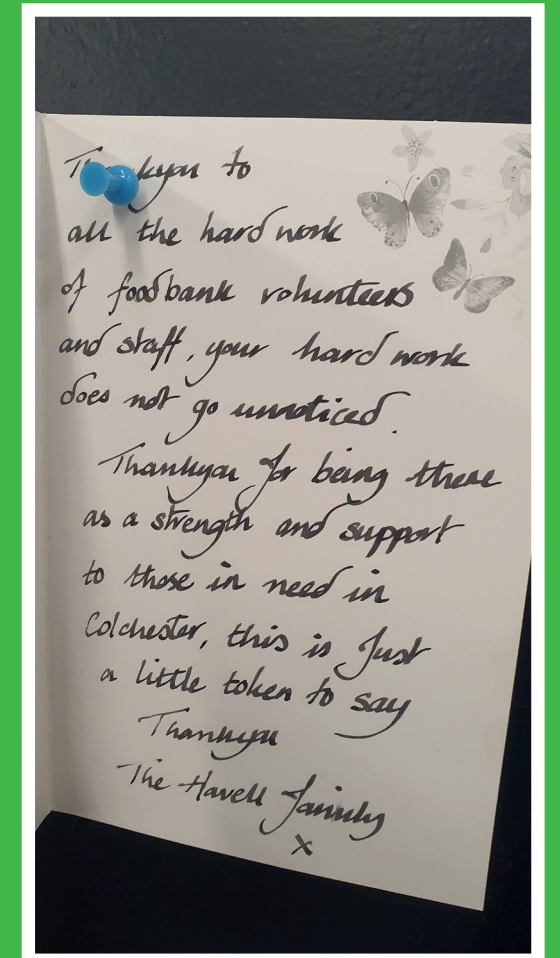 Thankyou to
all the hard work
of foodbank volunteers
and staff, your hard work
does not go unnoticed.
Thankyou for being there
as a strength and support
to those in need in
Colchester, this is Just
a little token to say
Thankyou
The Havell family
x